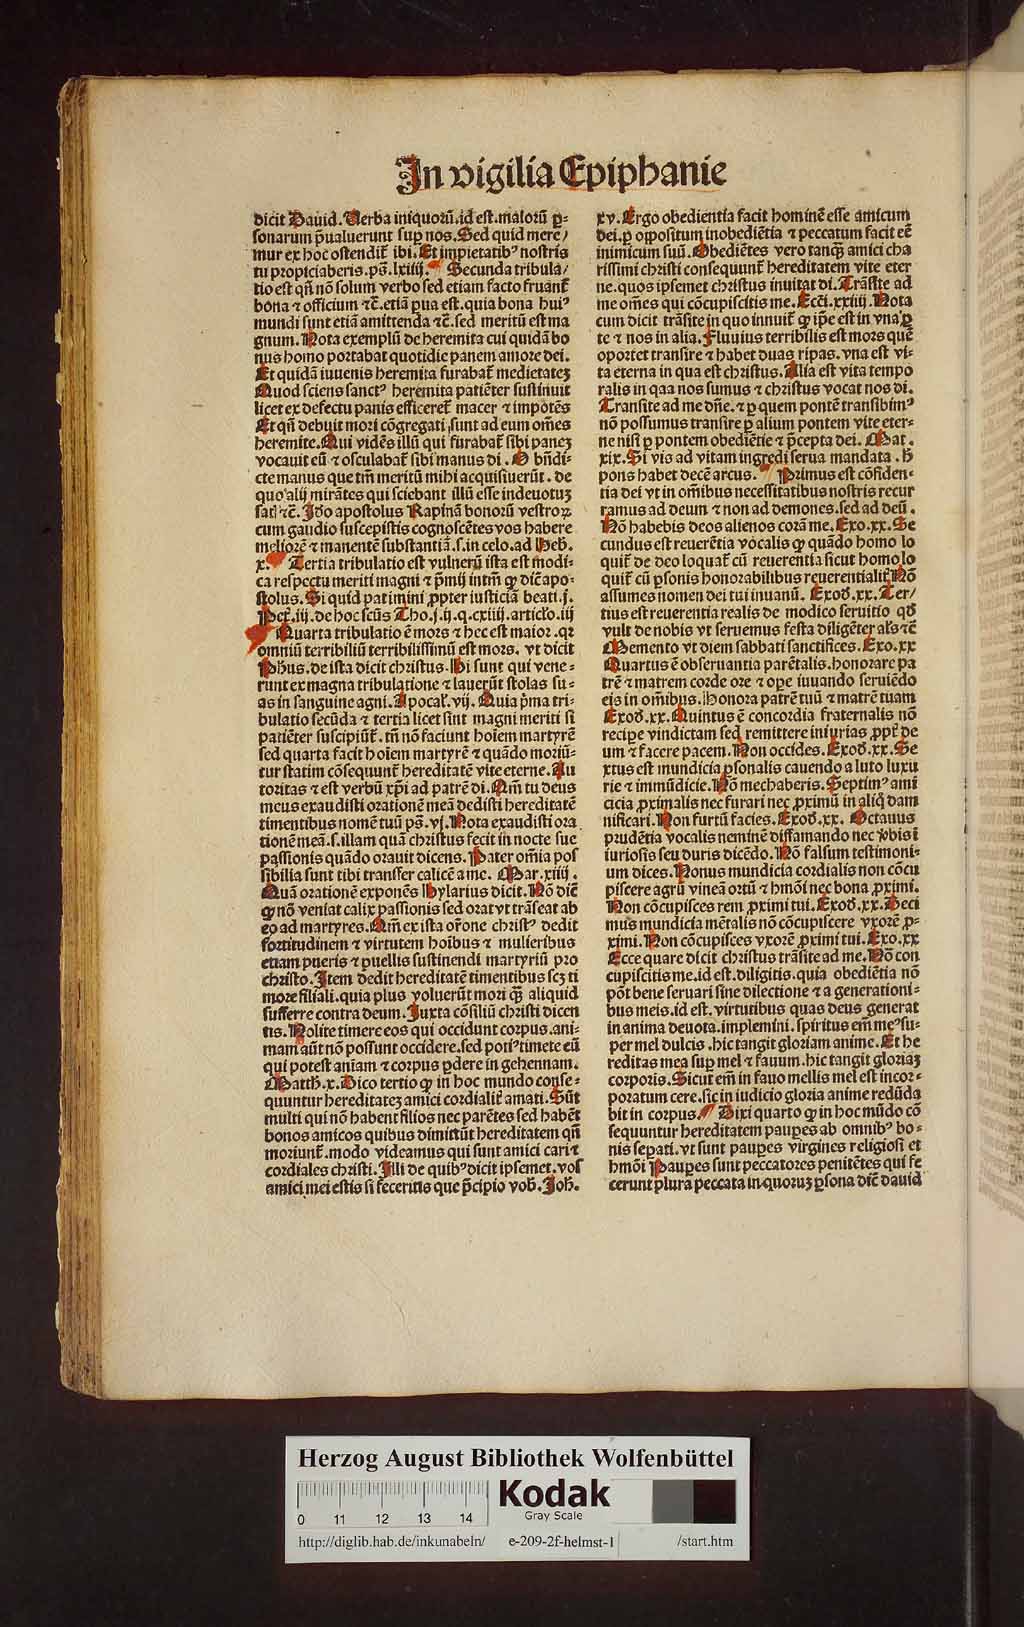 In vigilia Epiphanie
dicit Dauid. Verba iniquorū. id est. malorū ꝑ-
sonarum p̄ualuerunt suꝑ nos. Sed quid mere/
mur ex hoc ostendit᷑ ibi. Et impietatibꝰ nostris
tu propiciaberis. ps̄. lxiiij. Secunda tribula/
tio est qn̄ nō solum verbo sed etiam facto fruant᷑
bona ⁊ officium ⁊c̄. etiā ꝑua est. quia bona huiꝰ
mundi sunt etiā amittenda ⁊c̄. sed meritū est ma
gnum. Nota exemplū de heremita cui quidā bo
nus homo portabat quotidie panem amore dei.
Et quidā iuuenis heremita furabat᷑ medietatez
Quod sciens sanctꝰ heremita patiēter sustinuit
licet ex defectu panis efficeret᷑ macer ⁊ impotēs
Et qn̄ debuit mori cōgregati sunt ad eum om̄es
heremite. Qui vidēs illū qui furabat᷑ sibi panez
vocauit eū ⁊ osculabat᷑ sibi manus di. O bn̄di-
cte manus que tm̄ meritū mihi acquisiuerūt. de
quo alij mirātes qui sciebant illū esse indeuotuz
⁊c̄. Iō apostolus Rapinā bonorū vestroꝝ
cum gaudio suscepistis cognoscētes vos habere
meliorē ⁊ manentē substantiā. s. in celo. ad Heb̄.
x. Tertia tribulatio est vulnerū ista est modi-
ca respectu meriti magni ⁊ p̄mij intm̄ ꝙ dic̄ apo-
stolus. Si quid patimini ꝓpter iusticiā beati. j.
Pet᷑. iij. de hoc scūs Tho. j. ij. q. cxiiij. articĺo. iij
Quarta tribulatio ē mors ⁊ hec est maior. qꝛ
omniū terribiliū terribilissimū est mors. vt dicit
Ph̄us. de ista dicit christus. Hi sunt qui vene-
runt ex magna tribulatione ⁊ lauerūt stolas su-
as in sanguine agni. Apocal᷑. vij. Quia p̄ma tri-
bulatio secūda ⁊ tertia licet sint magni meriti si
patiēter suscipiūt᷑. tn̄ nō faciunt hoīem martyrē
sed quarta facit hoīem martyrē ⁊ quādo moriū-
tur statim cōsequunt᷑ hereditatē vite eterne. Au
toritas ⁊ est verbū xp̄i ad patrē di. Qm̄ tu deus
meus exaudisti orationē meā dedisti hereditatē
timentibus nomē tuū ps̄. vj. Nota exaudisti ora
tionē meā. s. illam quā christus fecit in nocte sue
passionis quādo orauit dicens. Pater om̄ia pos
sibilia sunt tibi transfer calicē a me. Mar. xiiij.
Quā orationē exponēs Hylarius dicit. Nō dic̄
ꝙ nō veniat calix passionis sed orat vt trāseat ab
eo ad martyres. Qm̄ ex ista or̄one christꝰ dedit
fortitudinem ⁊ virtutem hoībus ⁊ mulieribus
etiam pueris ⁊ puellis sustinendi martyriū pro
christo. Item dedit hereditatē timentibus scz ti
more filiali. quia plus voluerūt mori q̄ꝫ aliquid
sufferre contra deum. Iuxta cōsiliū christi dicen
tis. Nolite timere eos qui occidunt corpus. ani-
mam aūt nō possunt occidere. sed potiꝰ timete eū
qui potest aniam ⁊ corpus ꝑdere in gehennam.
Matth. x. Dico tertio ꝙ in hoc mundo conse-
quuntur hereditatez amici cordialit᷑ amati. Sūt
multi qui nō habent filios nec parētes sed habēt
bonos amicos quibus dimittūt hereditatem qn̄
moriunt᷑. modo videamus qui sunt amici cari ⁊
cordiales christi. Illi de quibꝰ dicit ipsemet. vos
amici mei estis si feceritis que p̄cipio vob̄. Joh̄.
xv. Ergo obedientia facit hominē esse amicum
dei. ꝑ oppositum inobediētia ⁊ peccatum facit eē
inimicum suū. Obediētes vero tanq̄ꝫ amici cha
rissimi christi consequunt᷑ hereditatem vite eter
ne. quos ipsemet christus inuitat di. Trāsite ad
me om̄es qui cōcupiscitis me. Ecc̄i. xxiiij. Nota
cum dicit trāsite in quo innuit᷑ ꝙ ip̄e est in vna ꝑ
te ⁊ nos in alia. Fluuius terribilis est mors quē
oportet transire ⁊ habet duas ripas. vna est vi-
ta eterna in qua est christus. Alia est vita tempo
ralis in qaa nos sumus ⁊ christus vocat nos di.
Transite ad me dn̄e. ⁊ ꝑ quem pontē transibimꝰ
nō possumus transire ꝑ alium pontem vite eter-
ne nisi ꝑ pontem obediētie ⁊ p̄cepta dei. Mat.
xix. Si vis ad vitam ingredi serua mandata. h̄
pons habet decē arcus. Primus est cōfiden-
tia dei vt in om̄ibus necessitatibus nostris recur
ramus ad deum ⁊ non ad demones. sed ad deū.
Nō habebis deos alienos corā me. Exo. xx. Se
cundus est reuerētia vocalis ꝙ quādo homo lo
quit᷑ de deo loquat᷑ cū reuerentia sicut homo lo
quit᷑ cū ꝑsonis honorabilibus reuerentialit᷑ Nō
assumes nomen dei tui inuanū. Exod̄. xx. Ter/
tius est reuerentia realis de modico seruitio qd̄
vult de nobis vt seruemus festa diligēter als̄ ⁊c̄
Memento vt diem sabbati sanctifices. Exo. xx
Quartus ē obseruantia parētalis. honorare pa
trē ⁊ matrem corde ore ⁊ oꝑe iuuando seruiēdo
eis in om̄ibus. Honora patrē tuū ⁊ matrē tuam
Exod̄. xx. Quintus ē concordia fraternalis nō
recipe vindictam sed remittere iniurias ꝓpt᷑ de
um ⁊ facere pacem. Non occides. Exod̄. xx. Se
xtus est mundicia ꝑsonalis cauendo a luto luxu
rie ⁊ immūdicie. Nō mechaberis. Septimꝰ ami
cicia ꝓximalis nec furari nec ꝓximū in aliq̄ dam
nificari. Non furtū facies. Exod̄. xx. Octauus
prudētia vocalis neminē diffamando nec v̾bis ī
iuriosis seu duris dicēdo. Nō falsum testimoni-
um dices. Nonus mundicia cordialis non cōcu
piscere agrū vineā ortū ⁊ hmōi nec bona ꝓximi.
Non cōcupisces rem ꝓximi tui. Exod̄. xx. Deci
mus mundicia mētalis nō cōcupiscere vxorē ꝓ-
ximi. Non cōcupisces vxorē ꝓximi tui. Exo. xx
Ecce quare dicit christus trāsite ad me. Nō con
cupiscitis me. id est. diligitis. quia obediētia nō
pōt bene seruari sine dilectione ⁊ a generationi-
bus meis. id est. virtutibus quas deus generat
in anima deuota. implemini. spiritus em̄ meꝰ su-
per mel dulcis. hic tangit gloriam anime. Et he
reditas mea suꝑ mel ⁊ fauum. hic tangit gloriaz
corporis. Sicut em̄ in fauo mellis mel est incor-
poratum cere. sic in iudicio gloria anime redūda
bit in corpus. Dixi quarto ꝙ in hoc mūdo cō
sequuntur hereditatem pauꝑes ab omnibꝰ bo-
nis seꝑati. vt sunt pauꝑes virgines religiosi et
hmōi Pauꝑes sunt peccatores penitētes qui fe
cerunt plura peccata in quoruz ꝑsona dic̄ dauid
Herzog August Bibliothek Wolfenbüttel
0 11 12 13 14
Kodak
Gray Scale
http://diglib.hab.de/inkunabeln/ e-209-2f-helmst-1 /start.htm